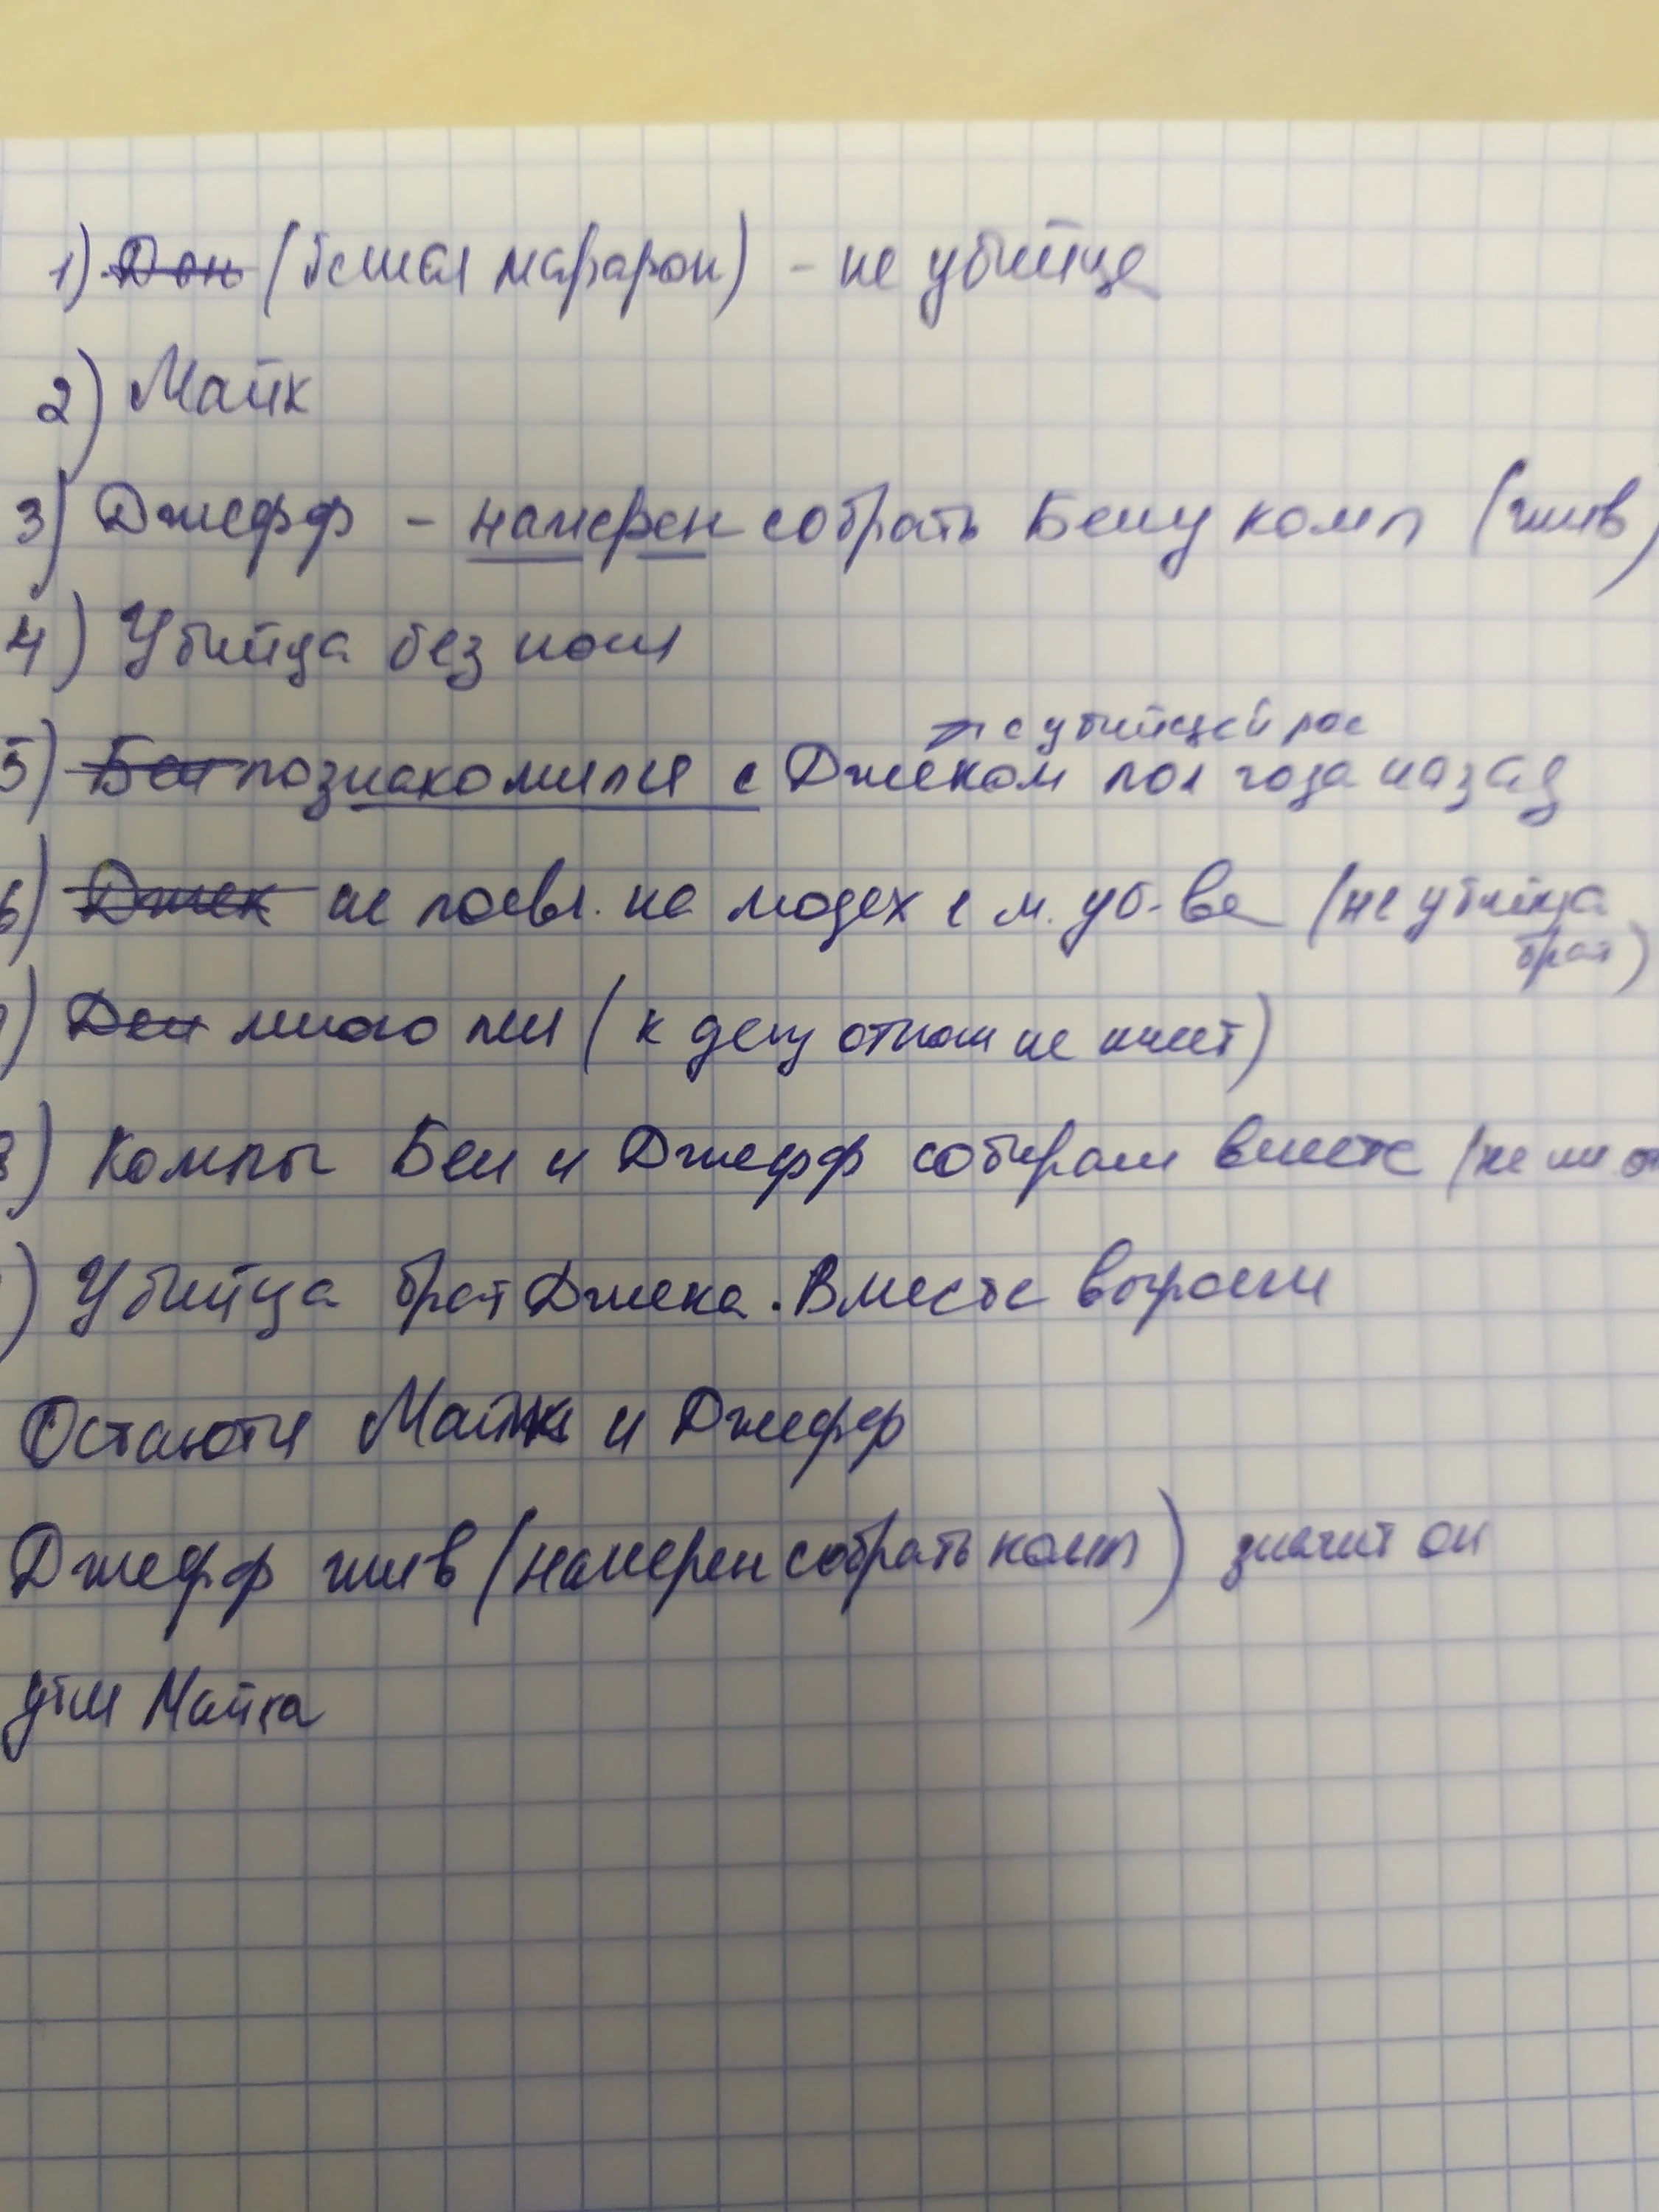 1) Дон (бежал марафон) - не убийца
2) Майк
3) Джефф - намерен собрать Бену комп (жив)
4) Убийца без ноги
с убийцей рос
5) Бен познакомился с Джеком пол года назад
6) Джек не появл. на людях с м. уб-ва (не убийца
брат)
) Ден много пил (к делу отнош не имеет)
8) Компы Бен и Джефф собирали вместе (не
) Убийца брат Джека. Вместе выросли
Остаются Майк и Джефф
Джефф жив (намерен собрать комп) значит он
убил Майка